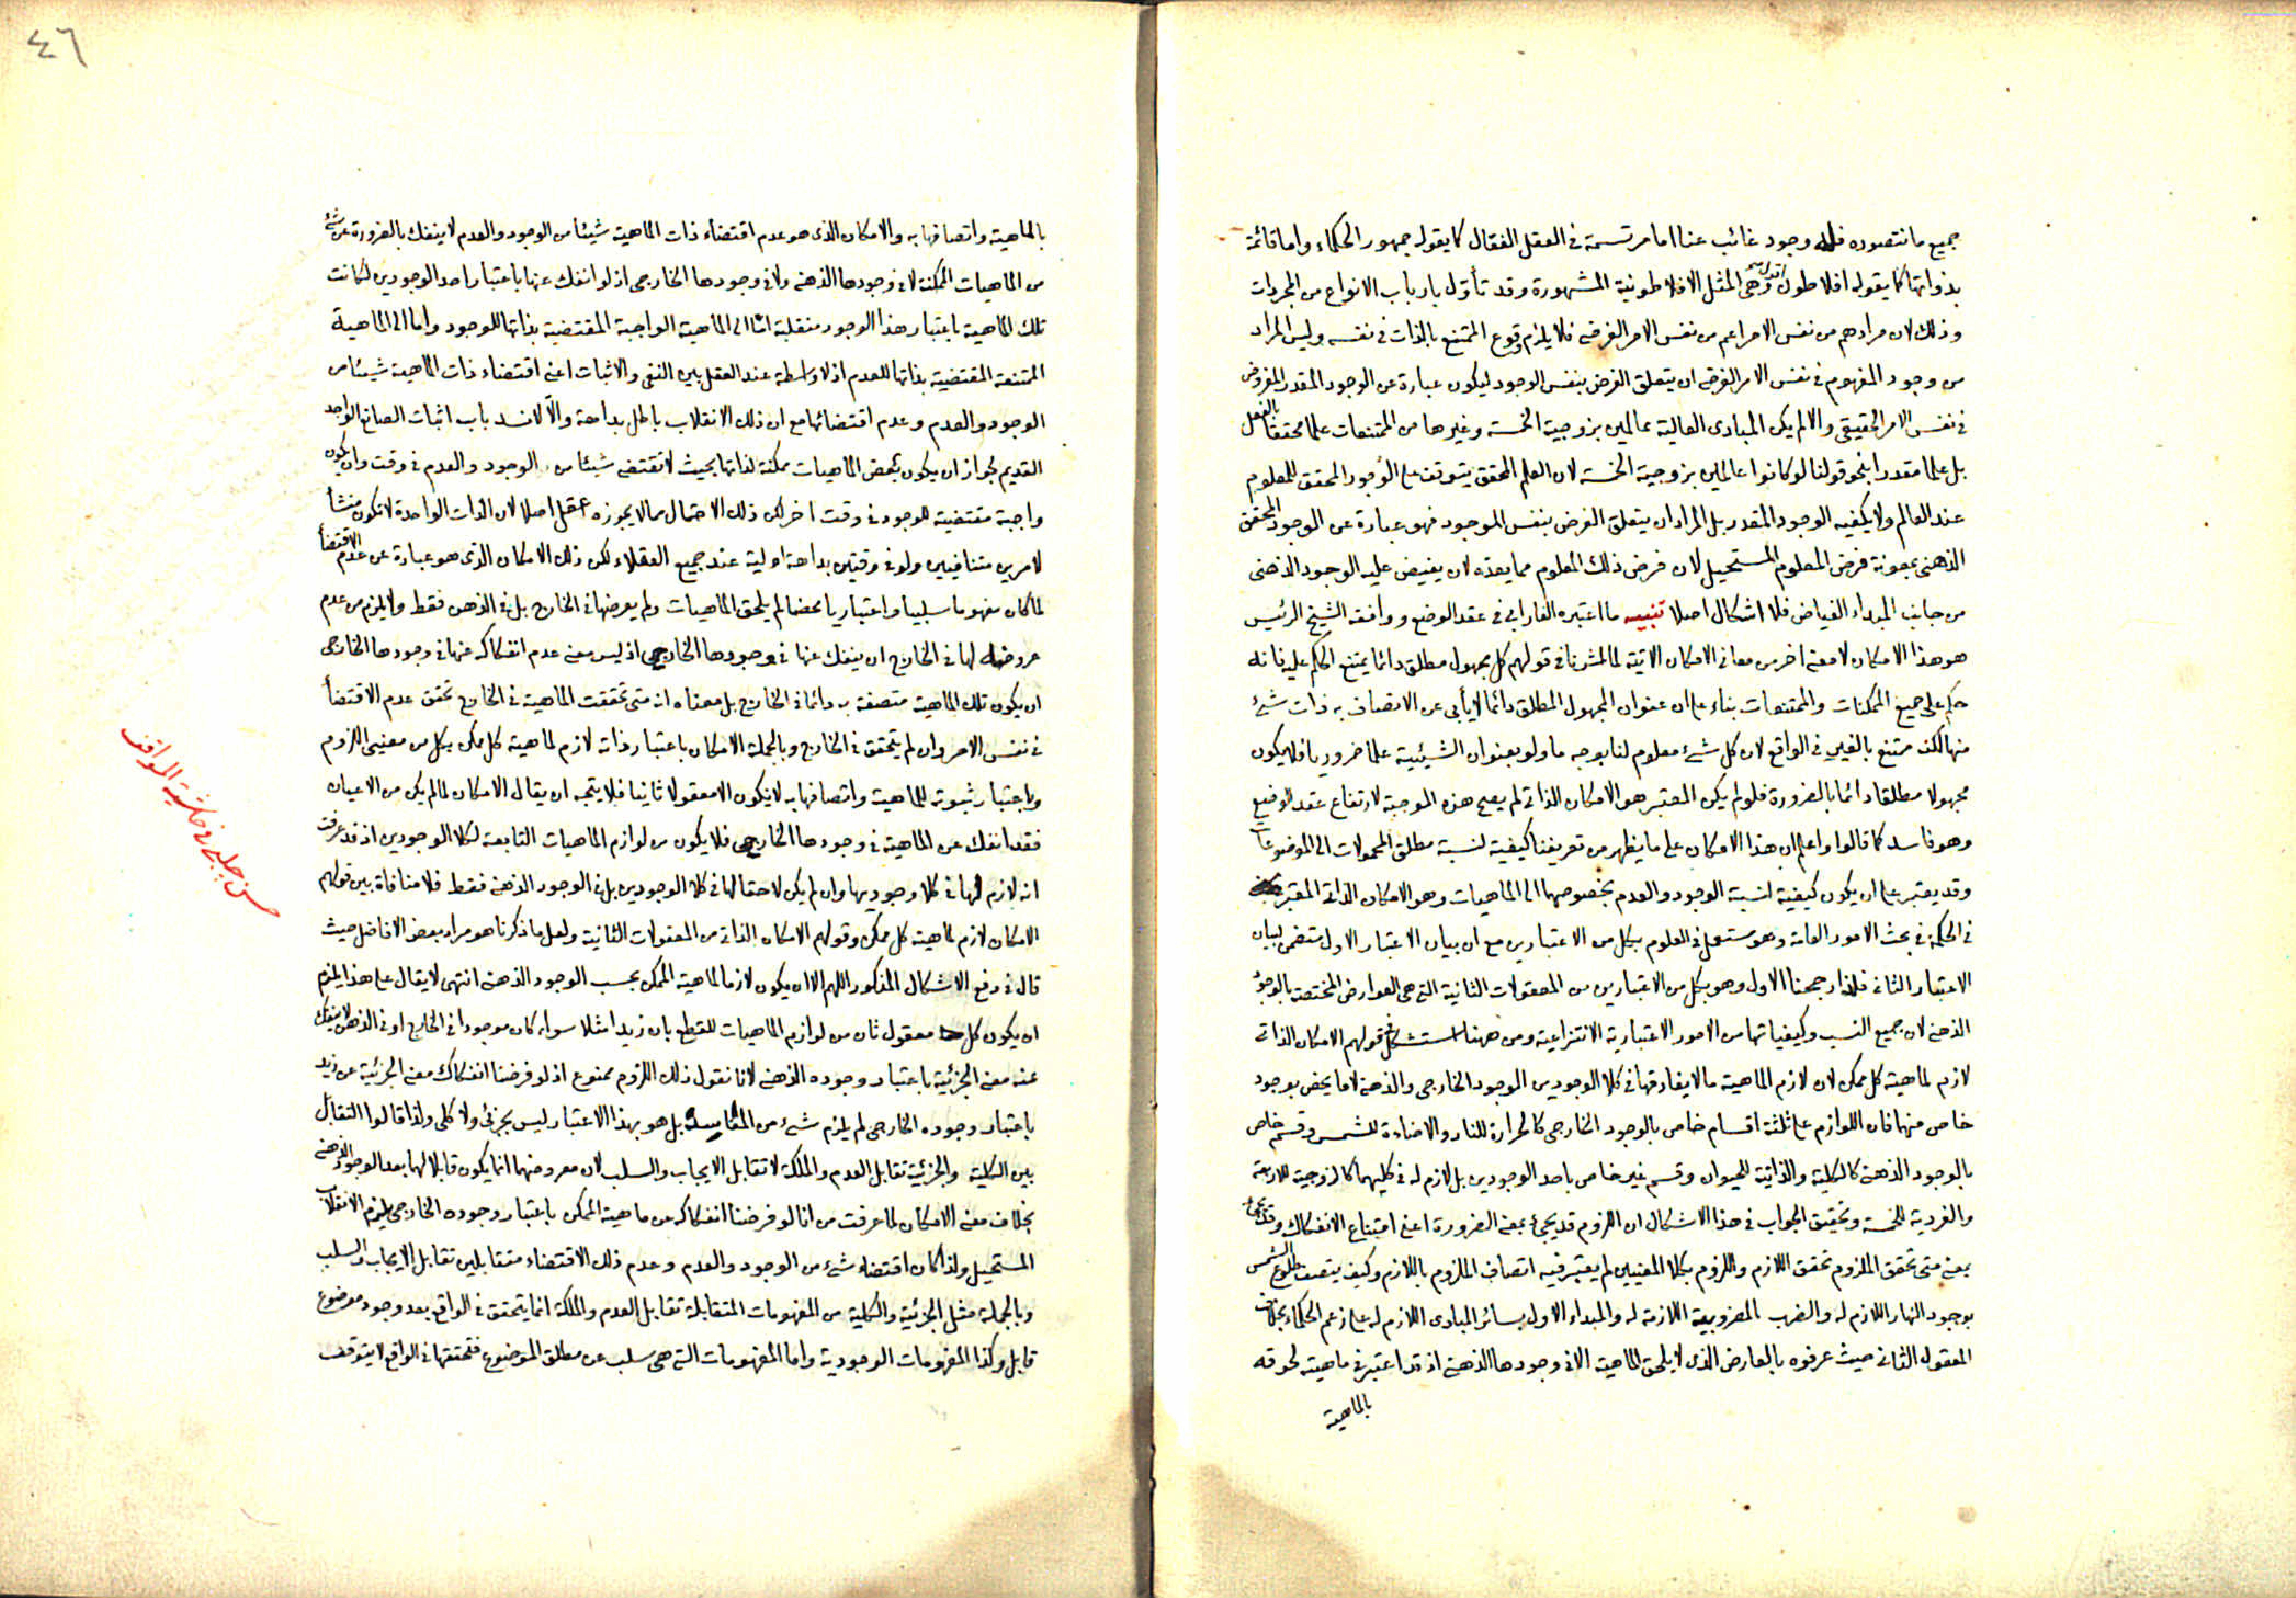 جميع ما نتصوره فله وجود غائب عنا اما مرتسمة في العقل الفعال كما يقوله جمهور الحكماء واما قائمة
بذواتها كما يقوله افلاطون وهي المثل الافلاطونية المشهورة وقد تأول بارباب الانواع من المجردات
وذلك لان مرادهم من نفس الامر اعم من نفس الامر الفرضي فلا يلزم وقوع الممتنع بالذات في نفسه وليس المراد
من وجود المفهوم في نفس الامر الفرضي ان يتعلق الفرض بنفس الوجود ليكون عبارة عن الوجود المقدر المفروض
في نفس الامر الحقيقي والا لم يكن المبادي العالية عالمين بزوجية الخمسة وغيرها من الممتنعات علما محققا بالفعل
بل علما مقدرا بنحو قولنا لو كانوا عالمين بزوجية الخمسة لان العلم المحقق يتوقف على الوجود المحقق للمعلوم
عند العالم ولا يكفيه الوجود المقدر بل المراد ان يتعلق الفرض بنفس الموجود فهو عبارة عن الوجود المحقق
الذهني بمعونة فرض المعلوم المستحيل لان فرض ذلك المعلوم مما يعده لان يفيض عليه الوجود الذهني
من جانب المبداء الفياض فلا اشكال اصلا تنبيه ما اعتبره الفارابي في عقد الوضع ووافقه الشيخ الرئيس
هو هذا الامكان لا معنى اخر من معاني الامكان الاتية لما اشرنا في قولهم كل مجهول مطلق دائما يمتنع الحكم عليه فانه
حكم على جميع الممكنات والممتنعات بناء على ان عنوان المجهول المطلق دائما لا يأبى عن الاتصاف به ذات شئ
منها لكنه ممتنع بالغير في الواقع لان كل شئ معلوم لنا بوجه ما ولو بعنوان الشيئية علما ضروريا فلا يكون
مجهولا مطلقا دائما بالضرورة فلو لم يكن المعتبر هو الامكان الذاتي لم يصح هذه الموجبة لارتفاع عقد الوضع
وهو فاسد كما قالوا واعلم ان هذا الامكان على ما يظهر من تعريفنا كيفية لنسبة مطلق المحمولات الى الموضوعات
وقد يعتبر على ان يكون كيفية لنسبة الوجود والعدم بخصوصهما الى الماهيات وهو الامكان الذاتي المعتبر
في الحكمة في بحث الامور العامة وهو مستعمل في العلوم بكل من الاعتبارين مع ان بيان الاعتبار الاول متضمن لبيان
الاعتبار الثاني فلذا رجحنا الاول وهو بكل من الاعتبارين من المعقولات الثانية التي هي العوارض المختصة بالوجود
الذهني لان جميع النسب وكيفياتها من الامور الاعتبارية الانتزاعية ومن ههنا استشكل في قولهم الامكان الذاتي
لازم لماهية كل ممكن لان لازم الماهية ما لا يفارقها في كلا الوجودين الوجود الخارجي والذهني لا ما يخص بوجود
خاص منها فان اللوازم على ثلثة اقسام خاص بالوجود الخارجي كالحرارة للنار والاضاءة للشمس وقسم خاص
بالوجود الذهني كالكلية والذاتية للحيوان وقسم غير خاص باحد الوجودين بل لازم له في كليهما كالزوجية للاربعة
والفردية للخمسة وتحقيق الجواب في هذا الاشكال ان اللزوم قد يجيء بمعنى الضرورة اعني امتناع الانفكاك وقد يجئ
بمعنى متى تحقق الملزوم تحقق اللازم واللزوم بكلا المعنيين لم يعتبر فيه اتصاف الملزوم باللازم وكيف يتصف طلوع الشمس
بوجود النهار اللازم له والضرب بالمضروبية اللازمة له والمبداء الاول بسائر المبادي اللازم له على زعم الحكماء بخلاف
المعقول الثاني حيث عرفوه بالعارض الذي لا يلحق الماهية الا في وجودها الذهني اذ قد اعتبر في ماهيته لحوقه
بالماهية
٤٦
بالماهية واتصافها به والامكان الذي هو عدم اقتضاء ذات الماهية شيئا من الوجود والعدم لا ينفك بالضرورة عن شئ
من الماهيات الممكنة لا في وجودها الذهني ولا في وجودها الخارجي اذ لو انفك عنها باعتبار احد الوجودين لكانت
تلك الماهية باعتبار هذا الوجود منقلبة اما الى الماهية الواجبة المقتضية بذاتها للوجود واما الى الماهية
الممتنعة المقتضية بذاتها للعدم اذ لا واسطة عند العقل بين النفي والاثبات اعني اقتضاء ذات الماهية شيئا من
الوجود والعدم وعدم اقتضائها مع ان ذلك الانقلاب باطل بداهة والا لانسد باب اثبات الصانع الواجد
القديم لجواز ان يكون بعض الماهيات ممكنة لذاتها بحيث لا تقتضي شيئا من الوجود والعدم في وقت وان يكون
واجبة مقتضية للوجود في وقت اخر لكن ذلك الاحتمال مما لا يجوزه عقل اصلا لان الذات الواحدة لا تكون منشأ
لامرين متنافيين ولو في وقتين بداهة اولية عند جميع العقلاء لكن ذلك الامكان الذي هو عبارة عن عدم الاقتضأ
لما كان مفهوما سلبيا واعتباريا محضا لم يلحق الماهيات ولم يعرضها في الخارج بل في الذهن فقط ولا يلزم من عدم
عروضه لها في الخارج ان ينفك عنها في وجودها الخارجي اذ ليس معنى عدم انفكاكه عنها في وجودها الخارجي
ان يكون تلك الماهية متصفة به دائما في الخارج بل معناه انه متى تحققت الماهية في الخارج تحقق عدم الاقتضأ
في نفس الامر وان لم يتحقق في الخارج وبالجملة الامكان باعتبار ذاته لازم لماهية كل ممكن بكل من معنيي اللزوم
وباعتبار ثبوته للماهية واتصافها به لا يكون الا معقولا ثانيا فلا يتجه ان يقال الامكان لما لم يكن من الاعيان
فقد انفك عن الماهية في وجودها الخارجي فلا يكون من لوازم الماهيات التابعة لكلا الوجودين اذ قد عرفت
انه لازم لها في كلا وجوديها وان لم يكن لاحقا لها في كلا الوجودين بل في الوجود الذهني فقط فلا منافاة بين قولهم
الامكان لازم لماهية كل ممكن وقولهم الامكان الذاتي من المعقولات الثانية ولعل ما ذكرنا هو مراد بعض الافاضل حيث
قال في دفع الاشكال المذكور اللهم الا ان يكون لازما لماهية الممكن بحسب الوجود الذهني انتهى لا يقال على هذا يلزم
ان يكون كل معقول ثان من لوازم الماهيات للقطع بان زيدا مثلا سواء كان موجودا في الخارج او في الذهن لا ينفك
عنه معنى الجزئية باعتبار وجوده الذهني لانا نقول ذلك اللزوم ممنوع اذ لو فرضنا انفكاك معنى الجزئية عن زيد
باعتبار وجوده الخارجي لم يلزم شئ من المفاسد بل هو بهذا الاعتبار ليس بجزئي ولا كلي ولذا قالوا التقابل
بين الكلية والجزئية تقابل العدم والملكة لا تقابل الايجاب والسلب لان معروضهما انما يكون قابلا لها بعد الوجود الذهني
بخلاف معنى الامكان لما عرفت من انا لو فرضنا انفكاكه عن ماهية الممكن باعتبار وجوده الخارجي يلزم الانقلاب
المستحيل ولذا كان اقتضاء شئ من الوجود والعدم وعدم ذلك الاقتضاء متقابلين تقابل الايجاب والسلب
وبالجملة مثل الجزئية والكلية من المفهومات المتقابلة تقابل العدم والملكة انما يتحقق في الواقع بعد وجود موضوع
قابل وكذا المفهومات الوجودية واما المفهومات التي هي سلب عن مطلق الموضوع فتحققها في الواقع لا يتوقف
حسن جلبي في حاشية المواقف